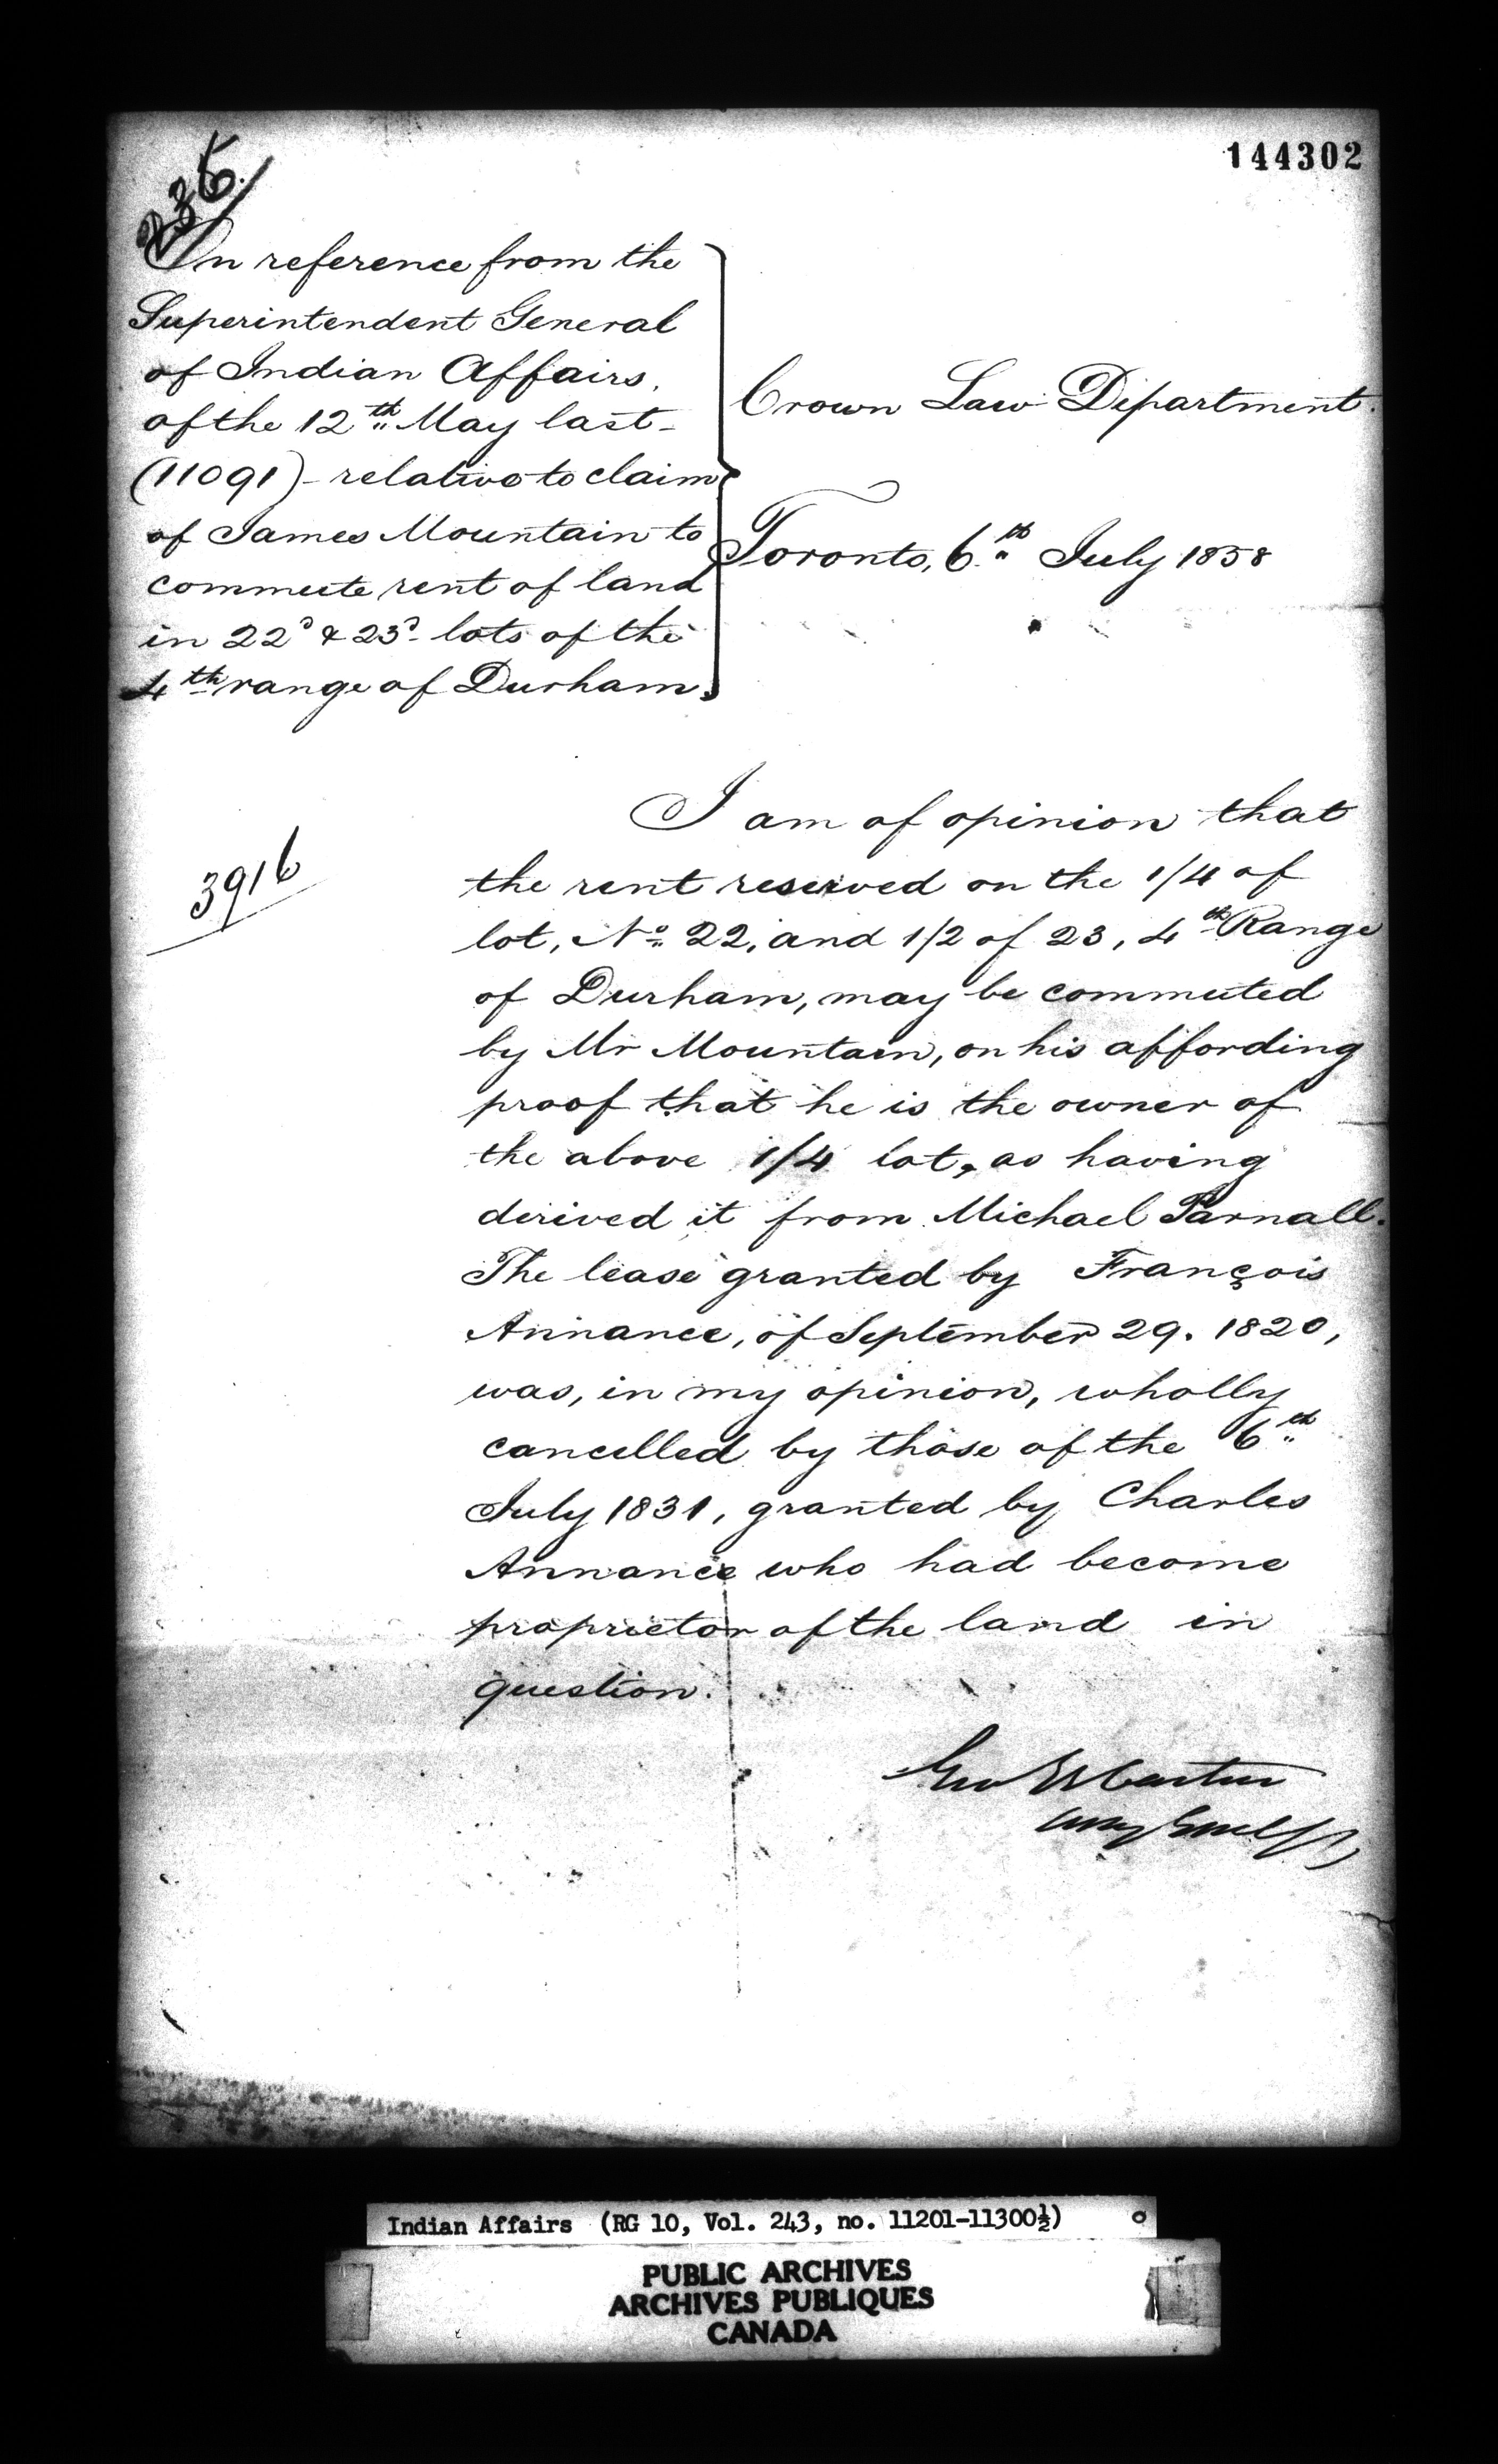 144302
235.
On reference from the
Superintendent General
of Indian Affairs,
of the 12th May last-
(11091) - relative to claim
of James Mountain to
commute rent of land
in 22d & 23d lots of the
4th range of Durham.
Crown Law Department.
Toronto, 6th July 1858
3916
I am of opinion that
the rent reserved on the 1/4 of
lot, No 22, and 1/2 of 23, 4th Range
of Durham, may be commuted
by Mr Mountain, on his affording
proof that he is the owner of
the above 1/4 lot, as having
derived it from Michael Parnall.
The lease granted by François
Annance, of September 29. 1820,
was, in my opinion, wholly
cancelled by those of the 6th
July 1831, granted by Charles
Annance who had become
proprietor of the land in
question.
Geo E Cartier
Atty Genl
Indian Affairs (RG 10, Vol. 243, no. 11201-11300½)
PUBLIC ARCHIVES
ARCHIVES PUBLIQUES
CANADA